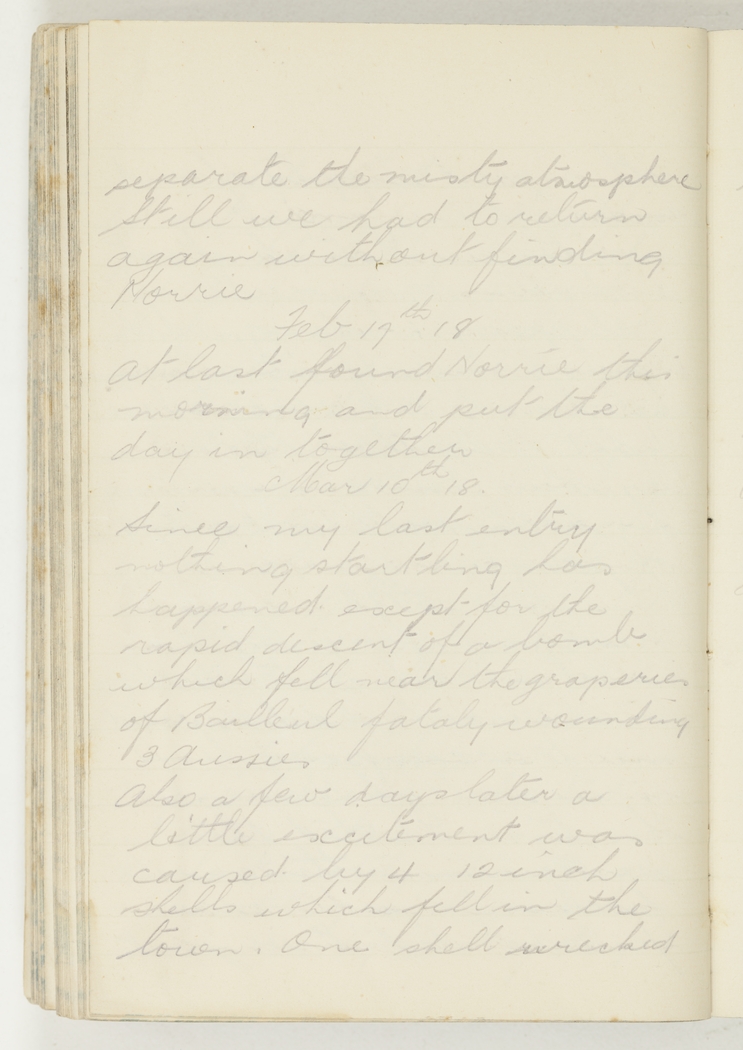 separate the misty atmosphere
Still we had to return
again without finding
Norrie
Feb 17th 18
at last found Norrie this
morning and put the
day in together
Mar 10th 18.
Since my last entry
nothing startling has
happened except for the
rapid descent of a bomb
which fell near the graperies
of Bailleul fataly wounding
3 Aussies
Also a few days later a
little excitement was
caused by 4 12 inch
shells which fell in the
town. One shell wrecked